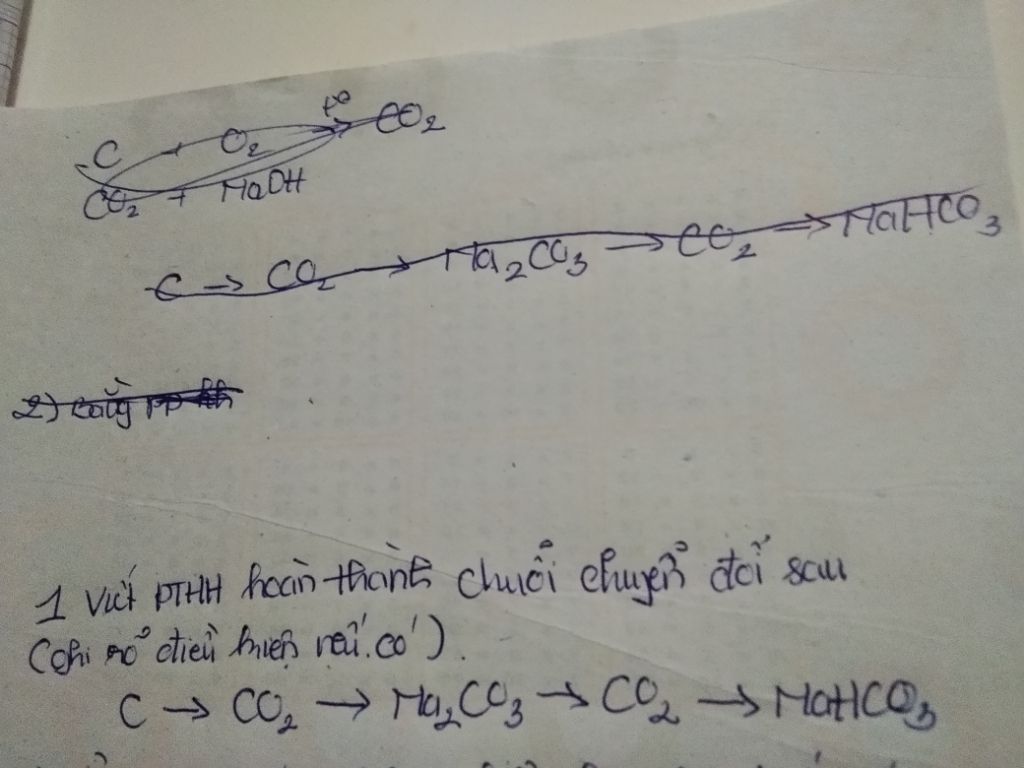 C + O₂ t° → CO₂
CO₂ + NaOH
C → CO₂ → Na₂CO₃ → CO₂ → NaHCO₃
2) bằng pp
1 Viết PTHH hoàn thành chuỗi chuyển đổi sau
(ghi rõ điều kiện nếu có).
C → CO₂ → Na₂CO₃ → CO₂ → NaHCO₃